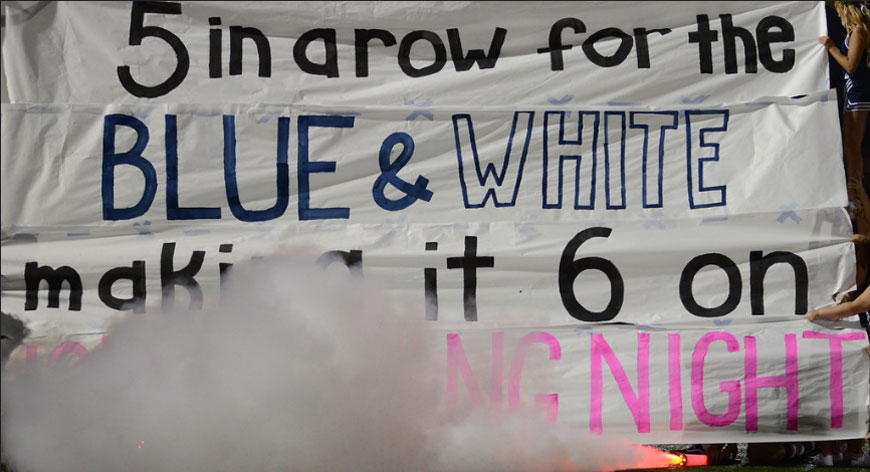 5 in a row for the
BLUE & WHITE
making it 6 on
NIGHT